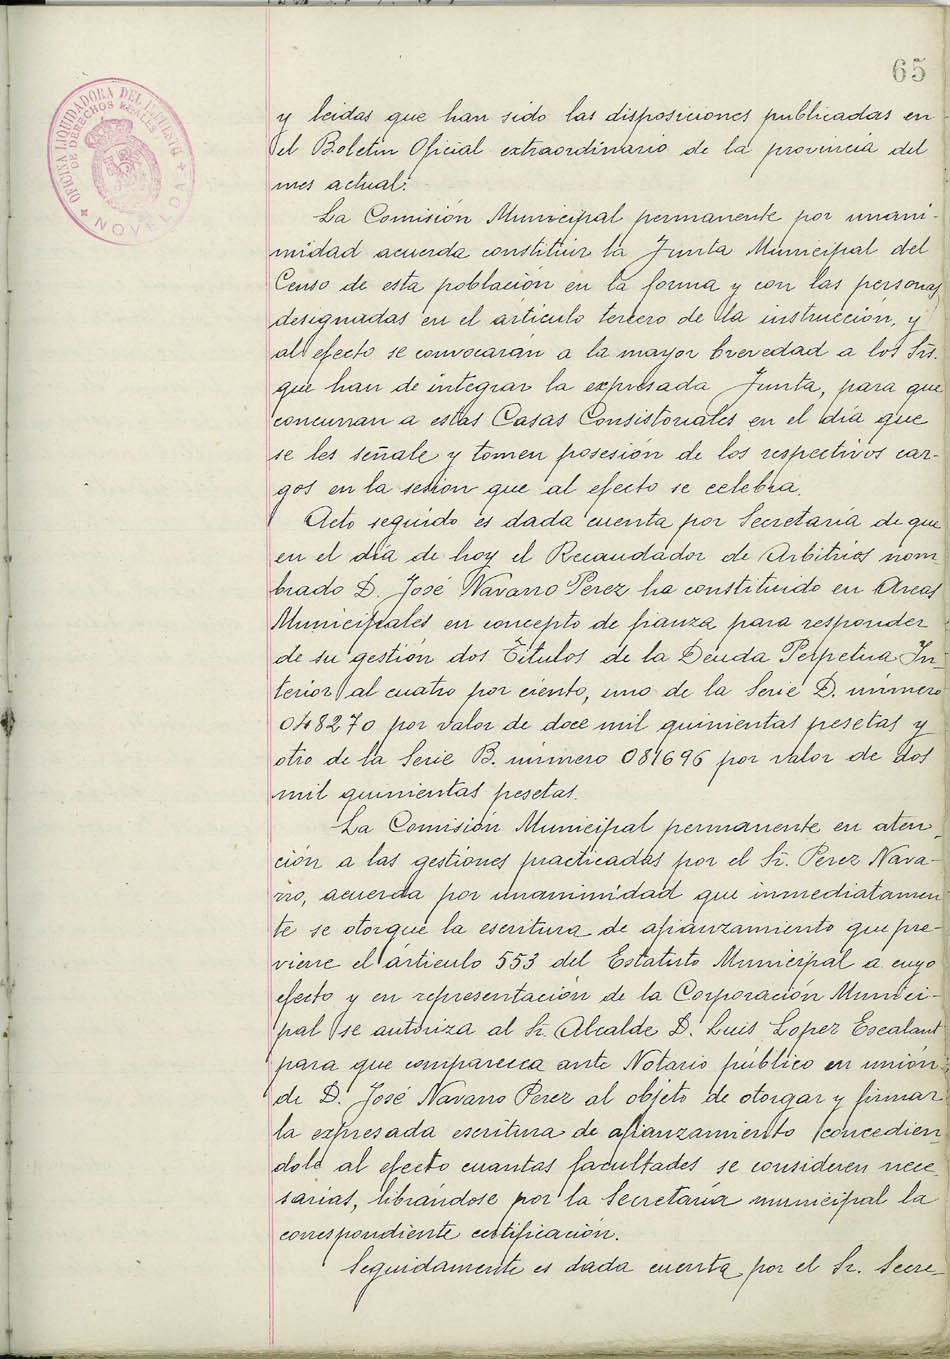 65
OFICINA LIQUIDADORA DEL IMPUESTO
DE DERECHOS REALES
NOVELDA
y leidas que han sido las disposiciones publicadas en
el Boletin Oficial extraordinario de la provincia del
mes actual.
La Comisión Municipal permanente por unani-
midad acuerda constituir la Junta Municipal del
Censo de esta población en la forma y con las personas
designadas en el artículo tercero de la instrucción, y
al efecto se convocarán a la mayor brevedad a los Srs.
que han de integrar la expresada Junta, para que
concurran a estas Casas Consistoriales en el día que
se les señale y tomen posesión de los respectivos car-
gos en la sesion que al efecto se celebra.
Acto seguido es dada cuenta por Secretaría de que
en el día de hoy el Recaudador de Arbitrios nom
brado D. José Navarro Perez ha constituido en Arcas
Municipales en concepto de fianza para responder
de su gestión dos Títulos de la Deuda Perpetua In-
terior al cuatro por ciento, uno de la Serie D. número
048270 por valor de doce mil quinientas pesetas y
otro de la Serie B. número 081696 por valor de dos
mil quinientas pesetas.
La Comisión Municipal permanente en aten-
ción a las gestiones practicadas por el Sr. Perez Nava-
rro, acuerda por unanimidad que inmediatamen
te se otorgue la escritura de afianzamiento que pre-
viene el artículo 553 del Estatuto Municipal a cuyo
efecto y en representación de la Corporación Munici-
pal se autoriza al Sr. Alcalde D. Luis Lopez Escalant
para que comparezca ante Notario público en unión
de D. José Navarro Perez al objeto de otorgar y firmar
la expresada escritura de afianzamiento concedien
dole al efecto cuantas facultades se consideren nece-
sarias, librándose por la Secretaría municipal la
correspondiente certificación.
Seguidamente es dada cuenta por el Sr. Secre-